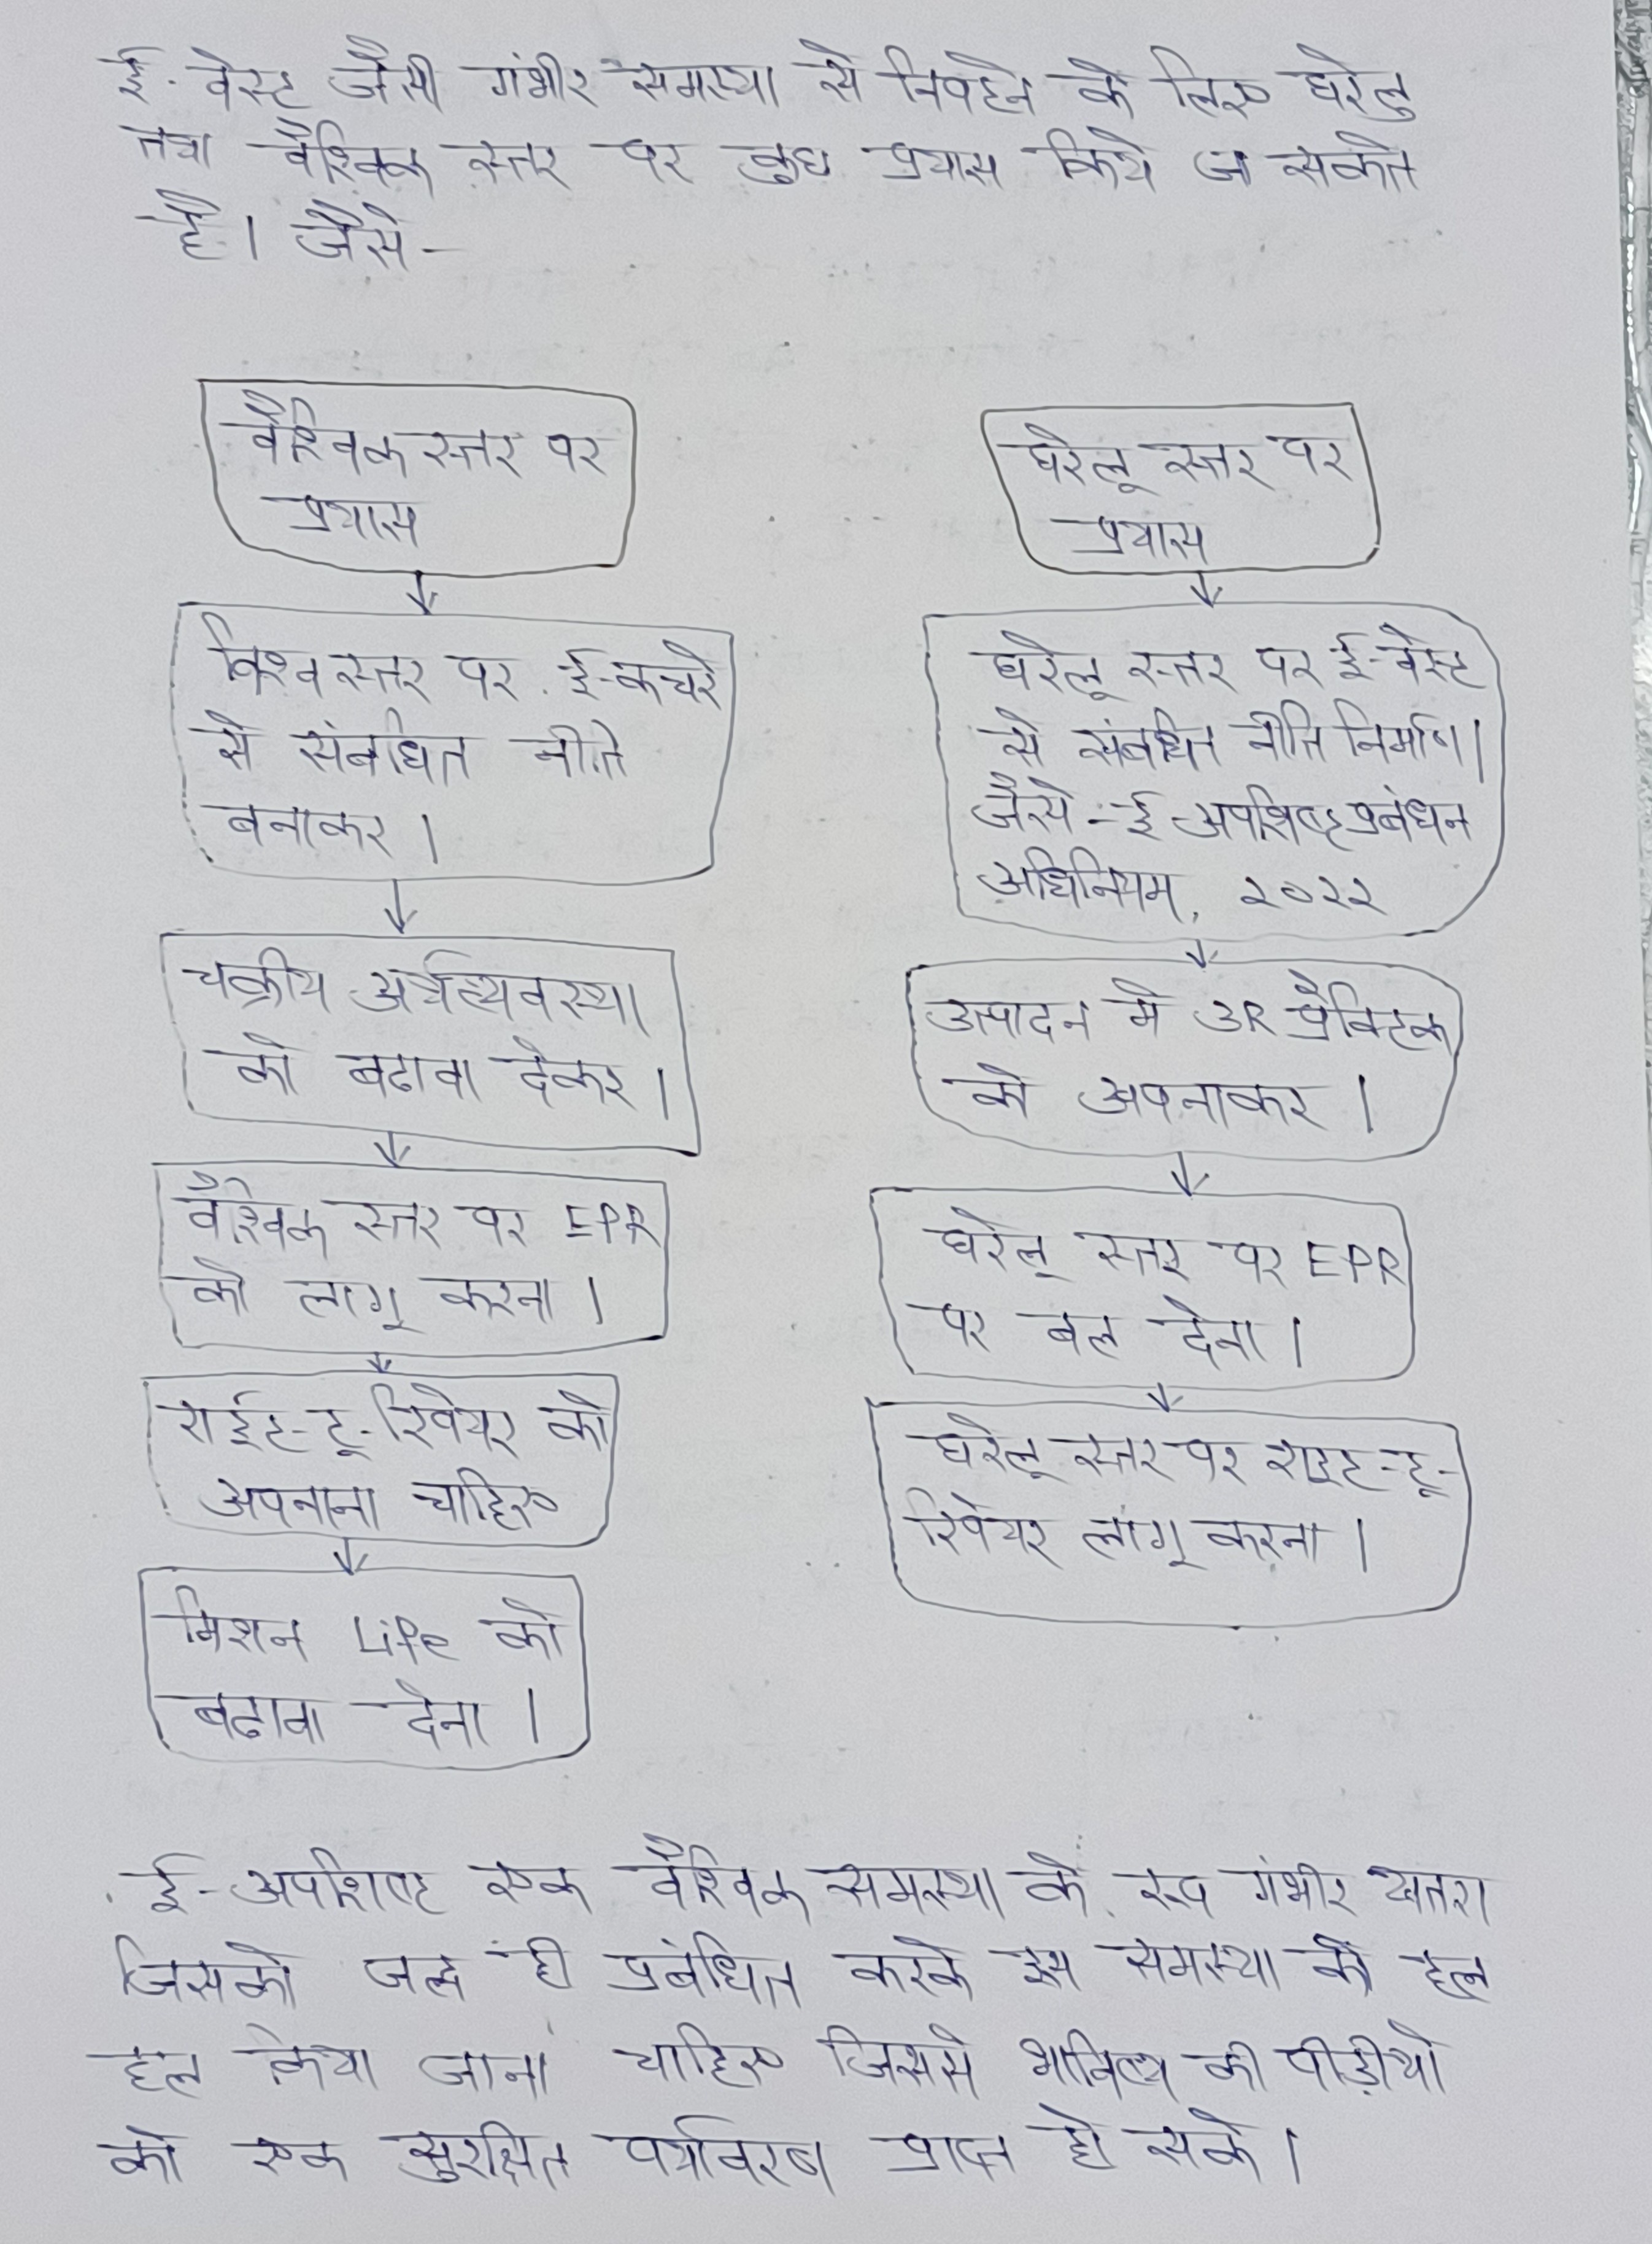 ई-वेस्ट जैसी गंभीर समस्या से निपटने के लिए घरेलु
तथा वैश्विक स्तर पर कुछ प्रयास किये जा सकते
है। जैसे-
वैश्विक स्तर पर
प्रयास
विश्व स्तर पर ई-कचरे
से संबंधित नीति
बनाकर।
चक्रीय अर्थव्यवस्था
को बढावा देकर।
वैश्विक स्तर पर EPR
को लागू करना।
राईट-टू-रिपेयर को
अपनाना चाहिए
मिशन Life को
बढावा देना।
घरेलू स्तर पर
प्रयास
घरेलू स्तर पर ई-वेस्ट
से संबंधित नीति निर्माण।
जैसे-ई-अपशिष्ट प्रबंधन
अधिनियम, २०२२
उत्पादन मे 3R प्रैक्टिक
को अपनाकर।
घरेलू स्तर पर EPR
पर बल देना।
घरेलू स्तर पर राइट-टू-
रिपेयर लागू करना।
ई-अपशिष्ट एक वैश्विक समस्या के रूप गंभीर खतरा
जिसको जल्द ही प्रबंधित करके इस समस्या को हल
हल किया जाना चाहिए जिससे भविष्य की पीड़ीयो
को एक सुरक्षित पर्यावरण प्राप्त हो सके।